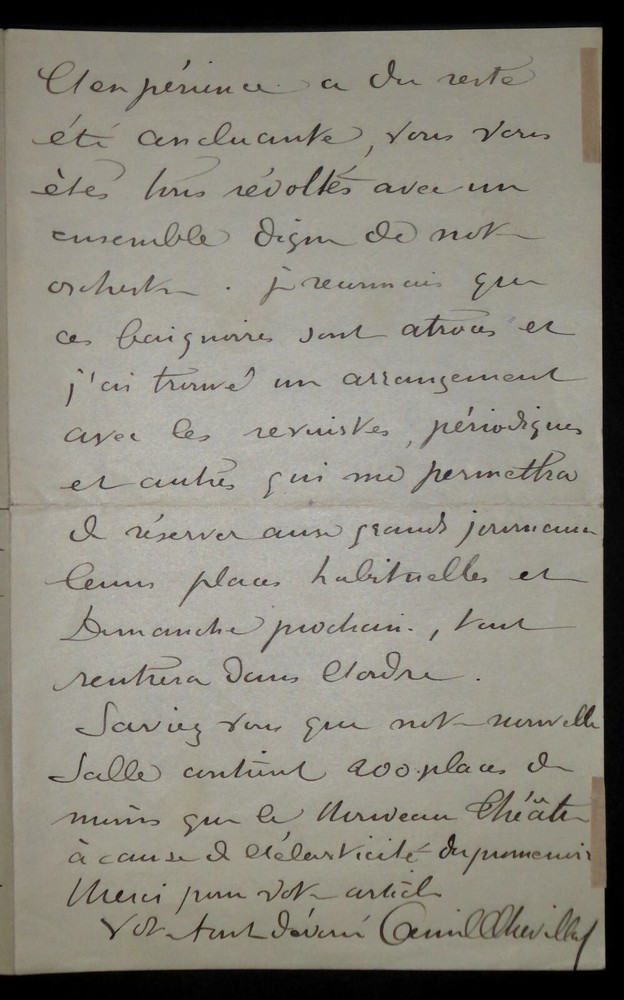 L'expérience a du reste
été concluante, vous vous
êtes tous révoltés avec un
ensemble digne de notre
orchestre. je reconnais que
ces baignoires sont atroces et
j'ai trouvé un arrangement
avec les revuistes, périodiques
et autres qui me permettra
de réserver aux grands journaux
leurs places habituelles et
Dimanche prochain, tout
rentrera dans l'ordre.
Saviez vous que notre nouvelle
Salle contient 200 places de
moins que le Nouveau Théâtre
à cause de l'élasticité du promenoir
Merci pour votre article
Votre tout dévoué Camille Chevillard